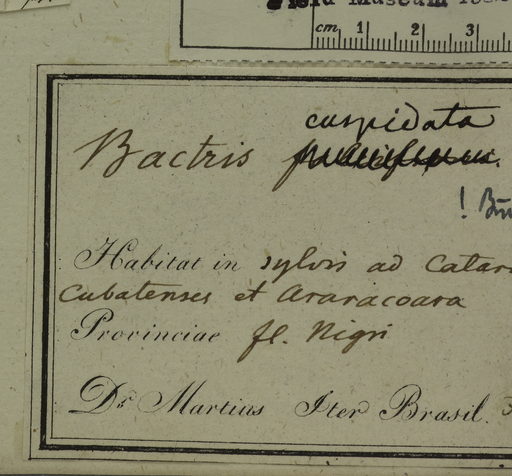 Field Museum
cm 1 2 3
cuspidata
Bactris
!
Habitat in sylvis ad Catar
Cubatenses et Araracoara
Provinciae fl. Nigri
Dr. Martius Iter Brasil. 3